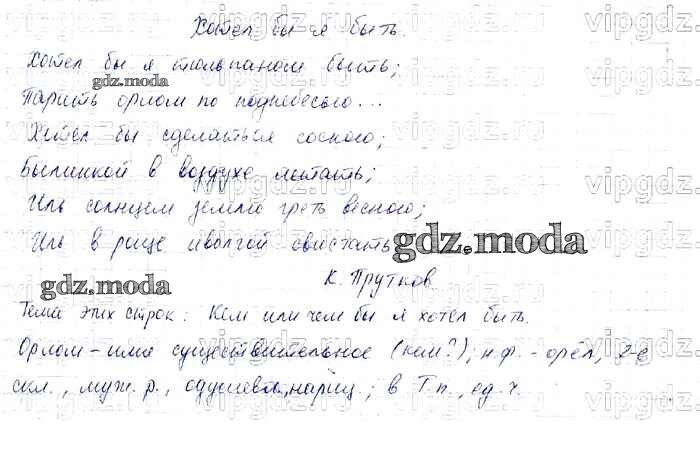 Хотел бы я быть.
Хотел бы я тюльпаном быть;
gdz.moda
Парить орлом по поднебесью...
Хотел бы сделаться сосною;
Былинкой в воздухе летать;
Иль солнцем землю греть весною;
Иль в роще иволгой свистать
gdz.moda
К. Прутков
gdz.moda
Тема этих строк: Кем или чем бы я хотел быть.
Орлом – имя существительное (кем?); н.ф. – орёл, 2-е
скл., муж. р., одушевл., нариц.; в Т.п., ед. ч.
vipgdz.ru